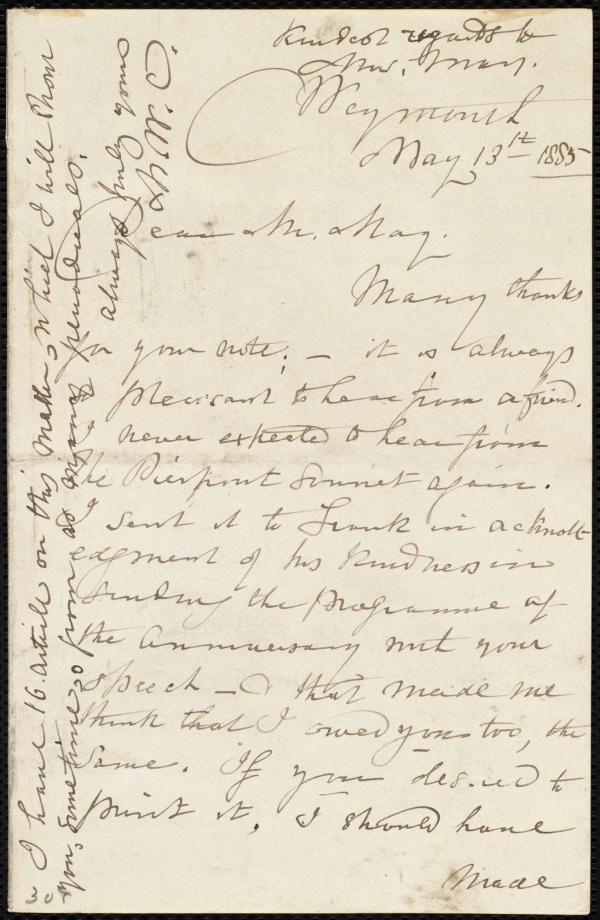 Kindest regards to
Mrs. May.
Weymouth
May 13th 1885
Dear Mr. May.
Many thanks
for your note; — it is always
pleasant to hear from a friend.
I never expected to hear from
the Pierpont Sonnet again.
I sent it to Frank in acknowl-
edgment of his kindness in
sending the programme of
the Anniversary with your
speech — & that made me
think that I owed you too, the
same. If you desired to
print it, I should have
made
I have 16 articles on this matter, which I will show
you, sometime, from as many periodicals.
always truly yours
M. W. C.
30